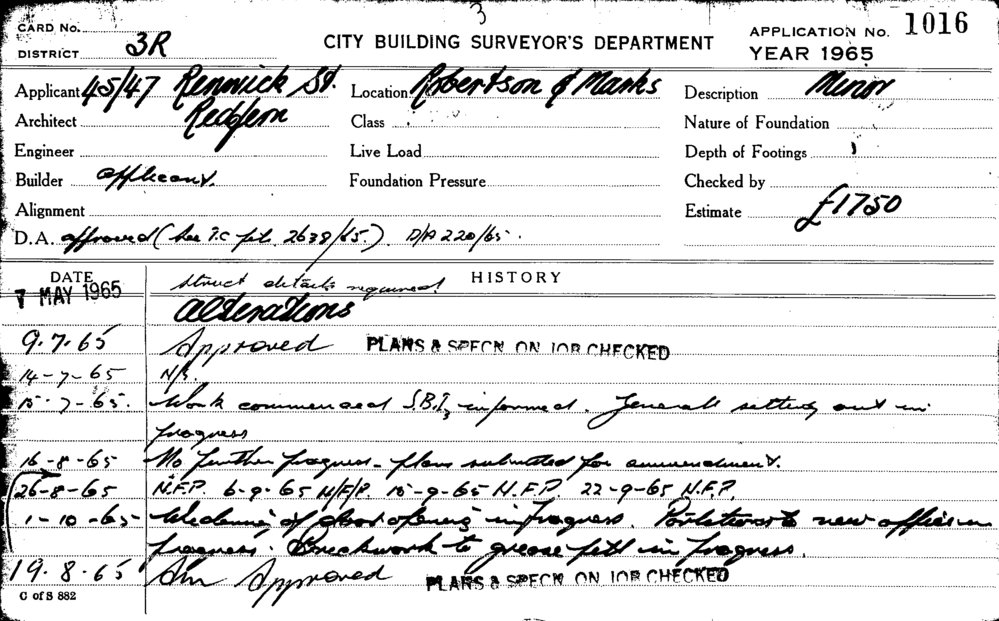 3
CARD No.
DISTRICT 3R
CITY BUILDING SURVEYOR'S DEPARTMENT
APPLICATION No. 1016
YEAR 1965
Applicant 45/47 Renwick St. Location Robertson & Marks Description Minor
Architect Redfern Class Nature of Foundation
Engineer Live Load Depth of Footings
Builder applicant. Foundation Pressure Checked by
Alignment Estimate £1750
D.A. approved (See T.C file 2638/65.) D/A 220/65.
DATE HISTORY
7 MAY 1965 struct details required
alterations
9.7.65 Approved PLANS & SPECN ON JOB CHECKED
14-7-65 N/S.
15-7-65. Work commenced S.B.I. informed. General setting out in
progress
16-8-65 No further progress - plans submitted for ammendment.
26-8-65 N.F.P. 6-9-65 N/F/P. 15-9-65 N.F.P. 22-9-65 N.F.P.
1-10-65 Widening of door opening in progress. to new office in
progress. Brickwork to grease pit in progress.
19.8.65 Am Approved PLANS & SPECN ON JOB CHECKED
C of S 882